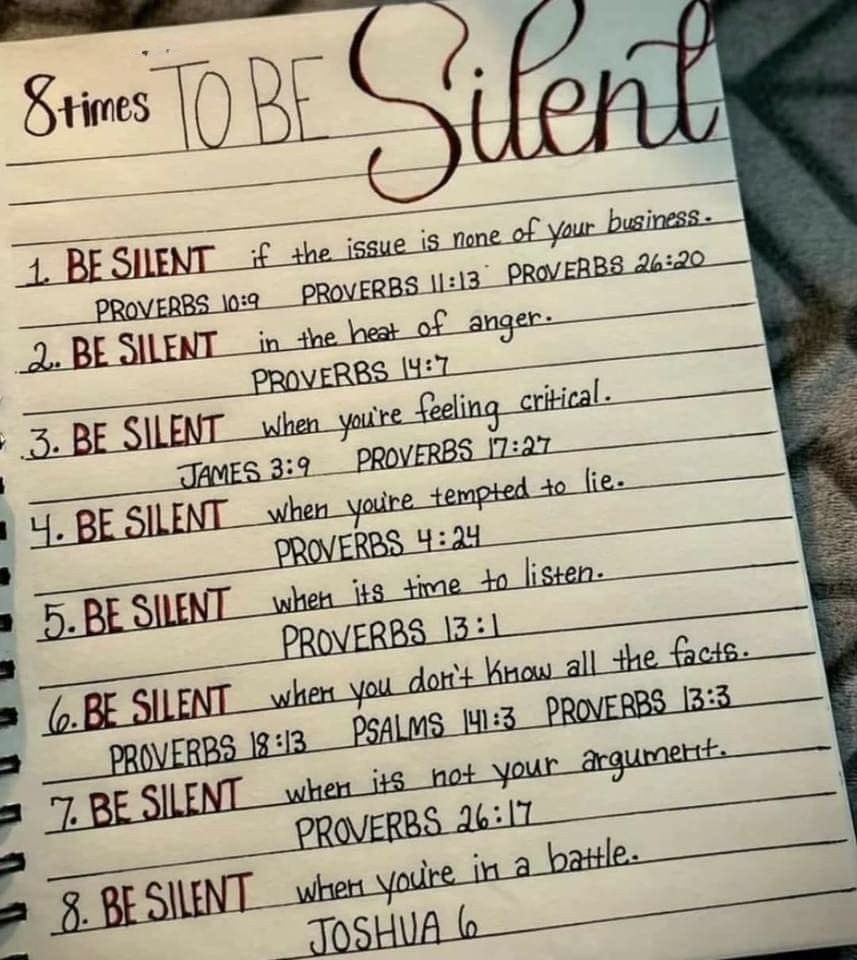 8 times TO BE Silent
1. BE SILENT if the issue is none of your business.
PROVERBS 10:9 PROVERBS 11:13 PROVERBS 26:20
2. BE SILENT in the heat of anger.
PROVERBS 14:7
3. BE SILENT when you're feeling critical.
JAMES 3:9 PROVERBS 17:27
4. BE SILENT when you're tempted to lie.
PROVERBS 4:24
5. BE SILENT when its time to listen.
PROVERBS 13:1
6. BE SILENT when you don't know all the facts.
PROVERBS 18:13 PSALMS 141:3 PROVERBS 13:3
7. BE SILENT when its not your argument.
PROVERBS 26:17
8. BE SILENT when you're in a battle.
JOSHUA 6